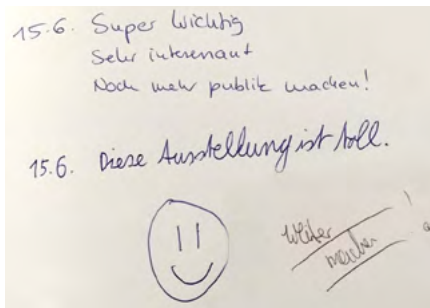 15.6. Super Wichtig
Sehr interessant
Noch mehr publik machen!
15.6. Diese Ausstellung ist toll.
Weiter
machen!